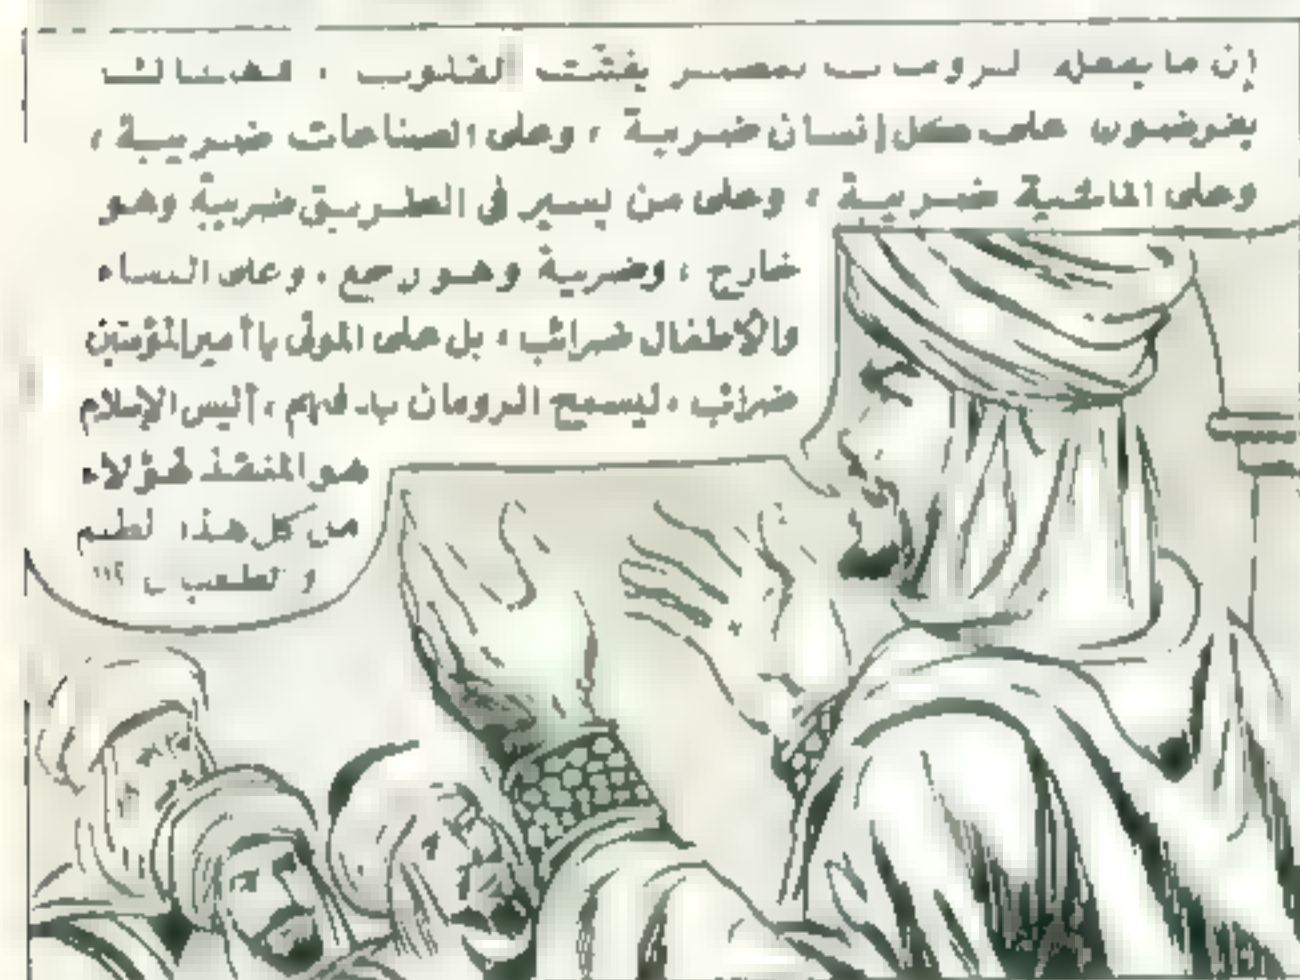 إن ما يفعله الرومان بمصر يفتت القلوب ، فهناك
يفرضون على كل إنسان ضريبة ، وعلى الصناعات ضريبة ،
وعلى الماشية ضريبة ، وعلى من يسير فى الطريق ضريبة وهو
خارج ، وضريبة وهو راجع ، وعلى النساء
والأطفال ضرائب ، بل على الموتى يا أمير المؤمنين
ضرائب ، ليسمح الرومان بدفنهم ، أليس الإسلام
هو المنقذ لهؤلاء
من كل هذا الظلم